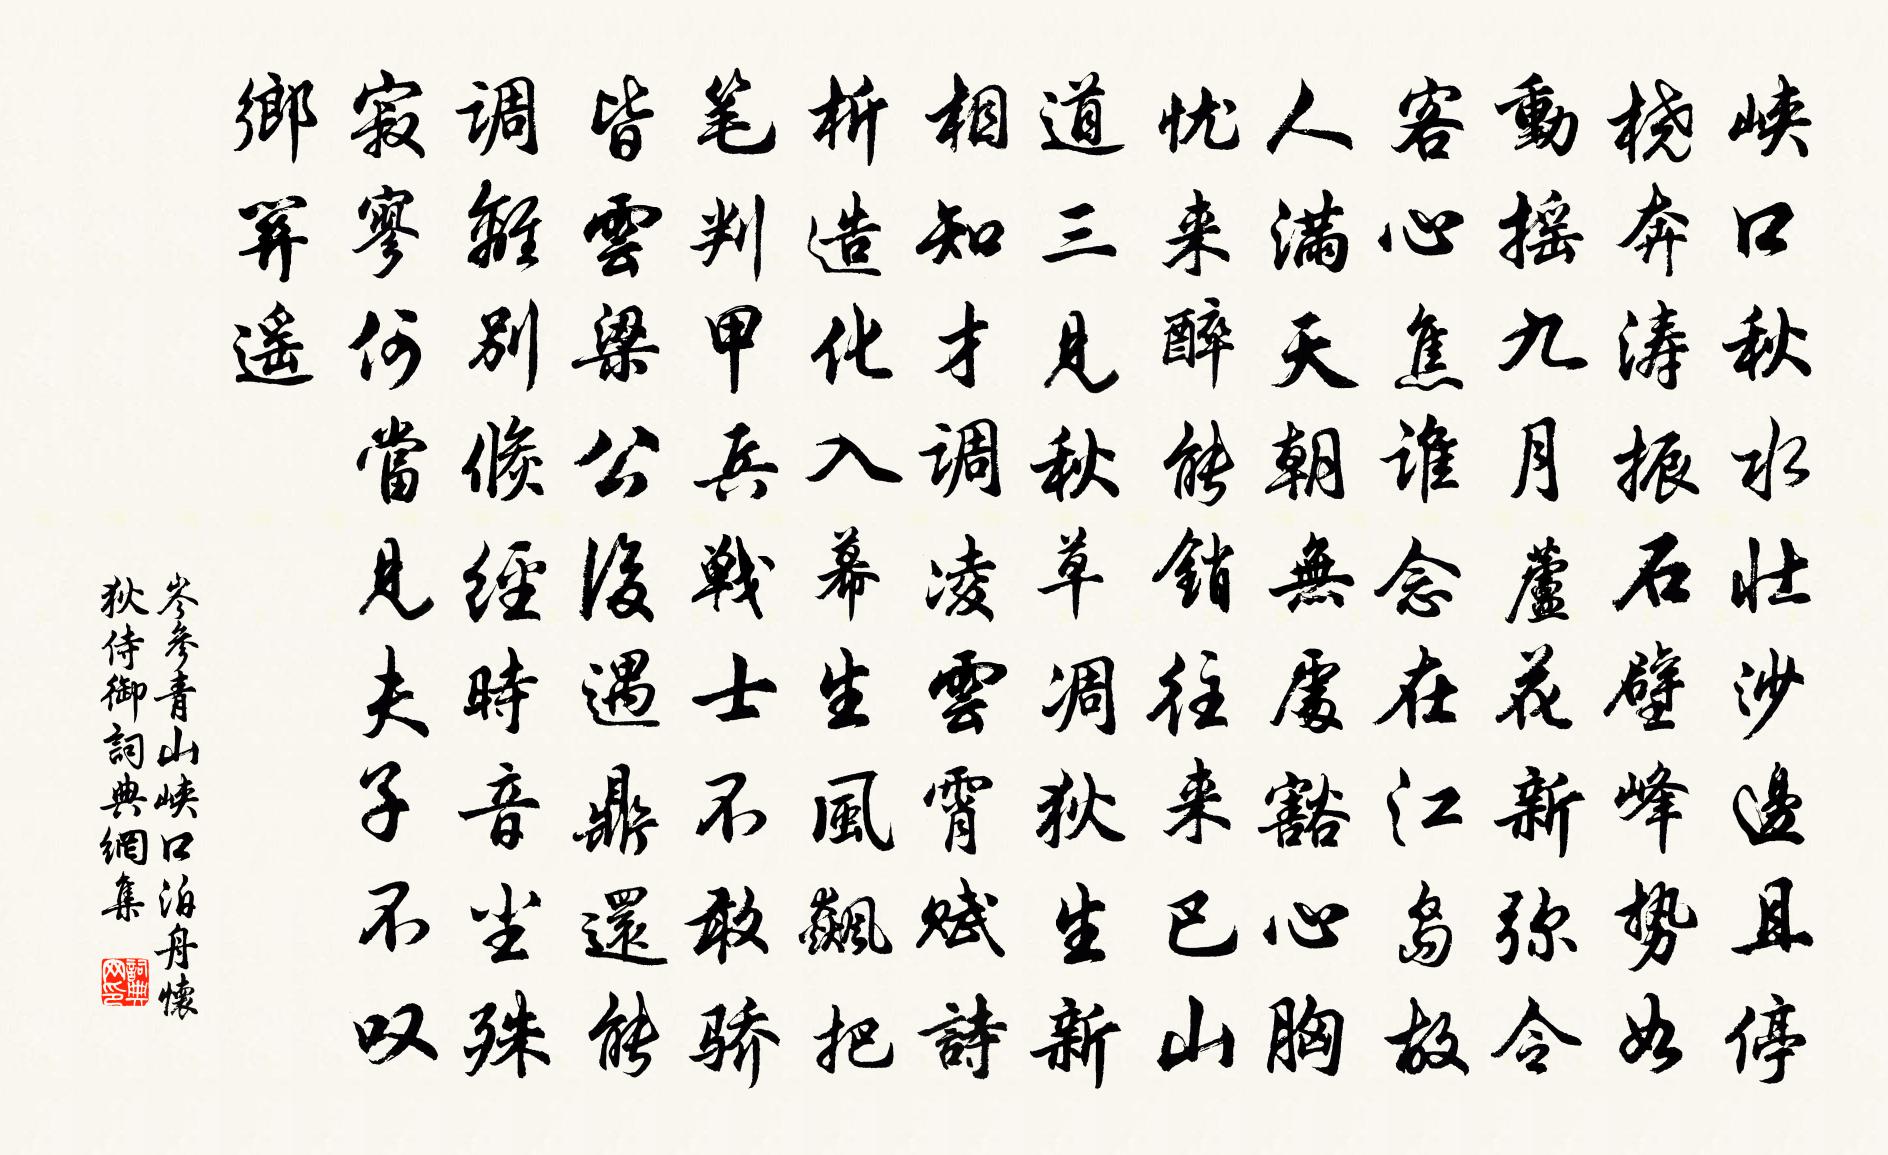 峡口秋水壮沙邊且停
桡奔涛振石壁峰势如
動摇九月蘆花新弥令
客心焦谁念在江岛故
人满天朝無處豁心胸
忧来醉能銷往来巴山
道三見秋草凋狄生新
相知才调凌雲霄赋詩
析造化入幕生風飆把
笔判甲兵戦士不敢骄
皆雲梁公後遇鼎還能
调離别倏經時音尘殊
寂寥何當見夫子不叹
鄉關遥
岑參青山峡口泊舟懷
狄侍御詞典網集
詞典
网印